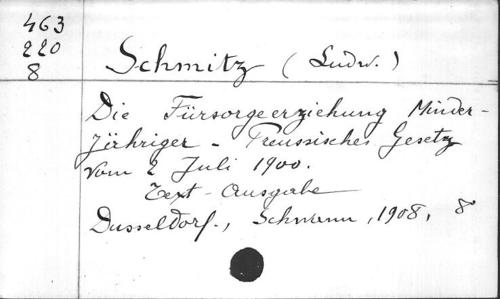 463
220
8
Schmitz (Ludw.)
Die Fürsorgeerziehung Minder-
jähriger - Preussisches Gesetz
vom 2 Juli 1900.
Text-Ausgabe
Dusseldorf., Schwann, 1908, 8